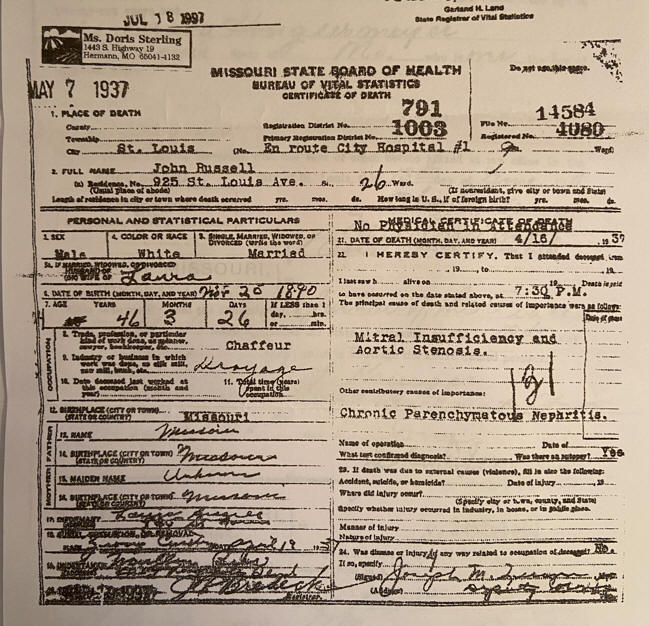 Garland H. Land
State Registrar of Vital Statistics
JUL 18 1997
Ms. Doris Sterling
1443 S. Highway 19
Hermann, MO 65041-4132
MAY 7 1937
MISSOURI STATE BOARD OF HEALTH
BUREAU OF VITAL STATISTICS
CERTIFICATE OF DEATH
Do not use this space.
791
14584
1. PLACE OF DEATH
County
Registration District No.
File No.
Township
Primary Registration District No. 1003
Registered No. 4080
City St. Louis (No. En route City Hospital #1 Ward)
2. FULL NAME John Russell
(a) Residence, No. 925 St. Louis Ave. St., 26 Ward.
(Usual place of abode) (If nonresident, give city or town and State)
Length of residence in city or town where death occurred yrs. mos. ds. How long in U. S., if of foreign birth? yrs. mos. ds.
PERSONAL AND STATISTICAL PARTICULARS
3. SEX 4. COLOR OR RACE 5. SINGLE, MARRIED, WIDOWED, OR DIVORCED (write the word)
Male White Married
5A. IF MARRIED, WIDOWED, OR DIVORCED
HUSBAND OF
(OR) WIFE OF Laura
6. DATE OF BIRTH (MONTH, DAY, AND YEAR) 1890
7. AGE YEARS MONTHS DAYS If LESS than 1
day, hrs.
or min.
46 3 26
OCCUPATION
8. Trade, profession, or particular
kind of work done, as spinner,
sawyer, bookkeeper, etc. Chaffeur
9. Industry or business in which
work was done, as silk mill,
saw mill, bank, etc. Drayage
10. Date deceased last worked at
this occupation (month and
year)
11. Total time (years)
spent in this
occupation
12. BIRTHPLACE (CITY OR TOWN)
(STATE OR COUNTRY) Missouri
FATHER
13. NAME Missouri
14. BIRTHPLACE (CITY OR TOWN)
(STATE OR COUNTRY) Missouri
MOTHER
15. MAIDEN NAME Unknown
16. BIRTHPLACE (CITY OR TOWN)
(STATE OR COUNTRY) Missouri
17. INFORMANT Laura
18. BURIAL, CREMATION, OR REMOVAL
April 19 1937
19. UNDERTAKER
Registrar.
MEDICAL CERTIFICATE OF DEATH
No Physician in Attendance
21. DATE OF DEATH (MONTH, DAY, AND YEAR) 4/16/ 1937
22. I HEREBY CERTIFY, That I attended deceased from
, 19 , to , 19
I last saw h alive on , 19 Death is said
to have occurred on the date stated above, at 7:30 P.M.
The principal cause of death and related causes of importance were as follows:
Date of onset
Mitral Insufficiency and
Aortic Stenosis.
Other contributory causes of importance:
Chronic Parenchymatous Nephritis.
Name of operation Date of
What test confirmed diagnosis? Was there an autopsy? Yes
23. If death was due to external causes (violence), fill in also the following:
Accident, suicide, or homicide? Date of injury 19
Where did injury occur?
(Specify city or town, county, and State)
Specify whether injury occurred in industry, in home, or in public place.
Manner of injury
Nature of injury
24. Was disease or injury in any way related to occupation of deceased? No.
If so, specify
(Signed) Joseph M.
(Address)